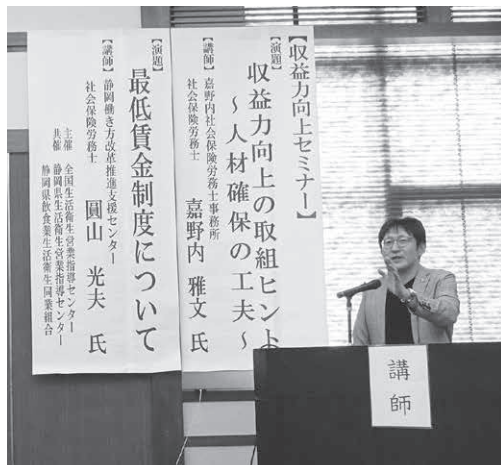 【収益力向上セミナー】
【演題】
収益力向上の取組ヒント
～人材確保の工夫～
【講師】嘉野内社会保険労務士事務所
社会保険労務士 嘉野内 雅文 氏
【演題】
最低賃金制度について
【講師】静岡働き方改革推進支援センター
社会保険労務士 圓山 光夫 氏
主催 全国生活衛生営業指導センター
共催 静岡県生活衛生営業指導センター
静岡県飲食業生活衛生同業組合
講師